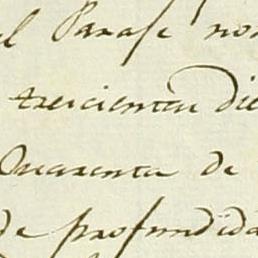 el Parase no
trecientas die
Quarenta de
de profundida